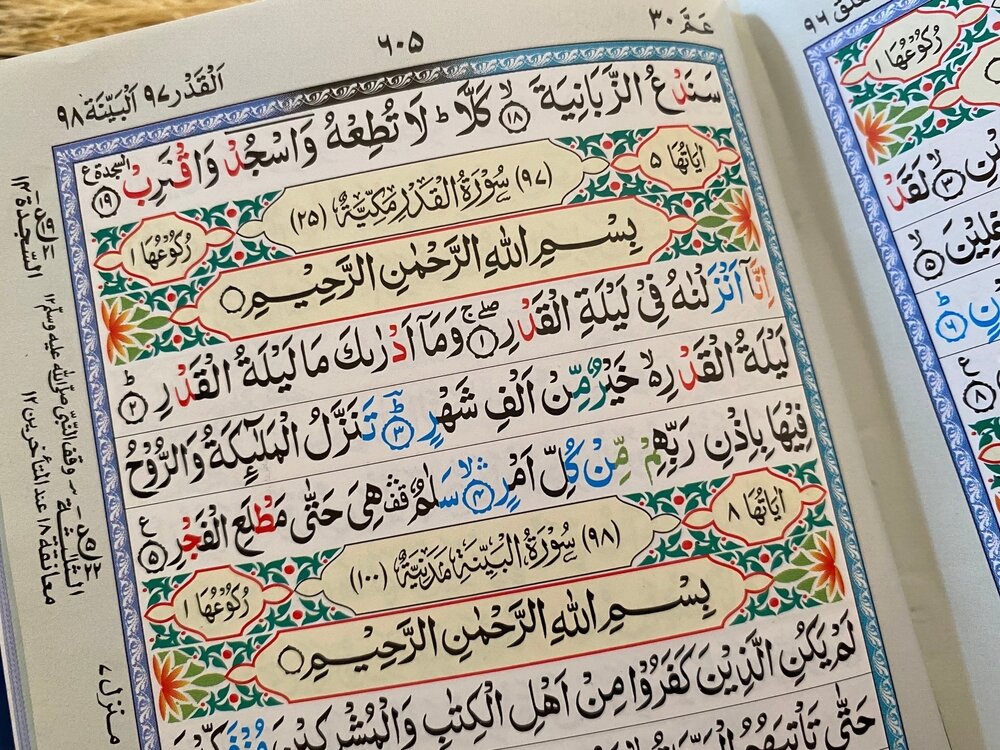 عَمَّ ٣٠
٦٠٥
اَلْقَدْر ٩٧ اَلْبَيِّنَة ٩٨
سَنَدْعُ الزَّبَانِيَةَ ۙ﴿١٨﴾ كَلَّا ؕ لَا تُطِعْهُ وَاسْجُدْ وَاقْتَرِبْ ﴿١٩﴾ السجدة ع
اٰيَاتُهَا ٥
(٩٧) سُوْرَةُ الْقَدْرِ مَكِّيَّةٌ (٢٥)
رُكُوْعُهَا ١
بِسْمِ اللهِ الرَّحْمٰنِ الرَّحِيْمِ
اِنَّاۤ اَنْزَلْنٰهُ فِيْ لَيْلَةِ الْقَدْرِ ۚۖ﴿١﴾ وَمَاۤ اَدْرٰىكَ مَا لَيْلَةُ الْقَدْرِ ؕ﴿٢﴾
لَيْلَةُ الْقَدْرِ ۙ خَيْرٌ مِّنْ اَلْفِ شَهْرٍ ؕ﴿٣﴾ تَنَزَّلُ الْمَلٰٓئِكَةُ وَالرُّوْحُ
فِيْهَا بِاِذْنِ رَبِّهِمْ ۚ مِّنْ كُلِّ اَمْرٍ ۙۛ﴿٤﴾ سَلٰمٌ ۛ هِيَ حَتّٰى مَطْلَعِ الْفَجْرِ ﴿٥﴾
اٰيَاتُهَا ٨
(٩٨) سُوْرَةُ الْبَيِّنَةِ مَدَنِيَّةٌ (١٠٠)
رُكُوْعُهَا ١
بِسْمِ اللهِ الرَّحْمٰنِ الرَّحِيْمِ
لَمْ يَكُنِ الَّذِيْنَ كَفَرُوْا مِنْ اَهْلِ الْكِتٰبِ وَالْمُشْرِكِيْنَ مُنْفَكِّيْنَ
حَتّٰى تَاْتِيَهُمُ
السَّجدة ١٤
وقف النّبي صلّى الله عليه وسلّم ١٢
معانقة ١٨ عند المتأخرين ١٢
منزل ٧
٩٦
رُكُوْعُهَا ١
﴿٣﴾ لَقَدْ
﴿٥﴾
﴿٦﴾
﴿٨﴾